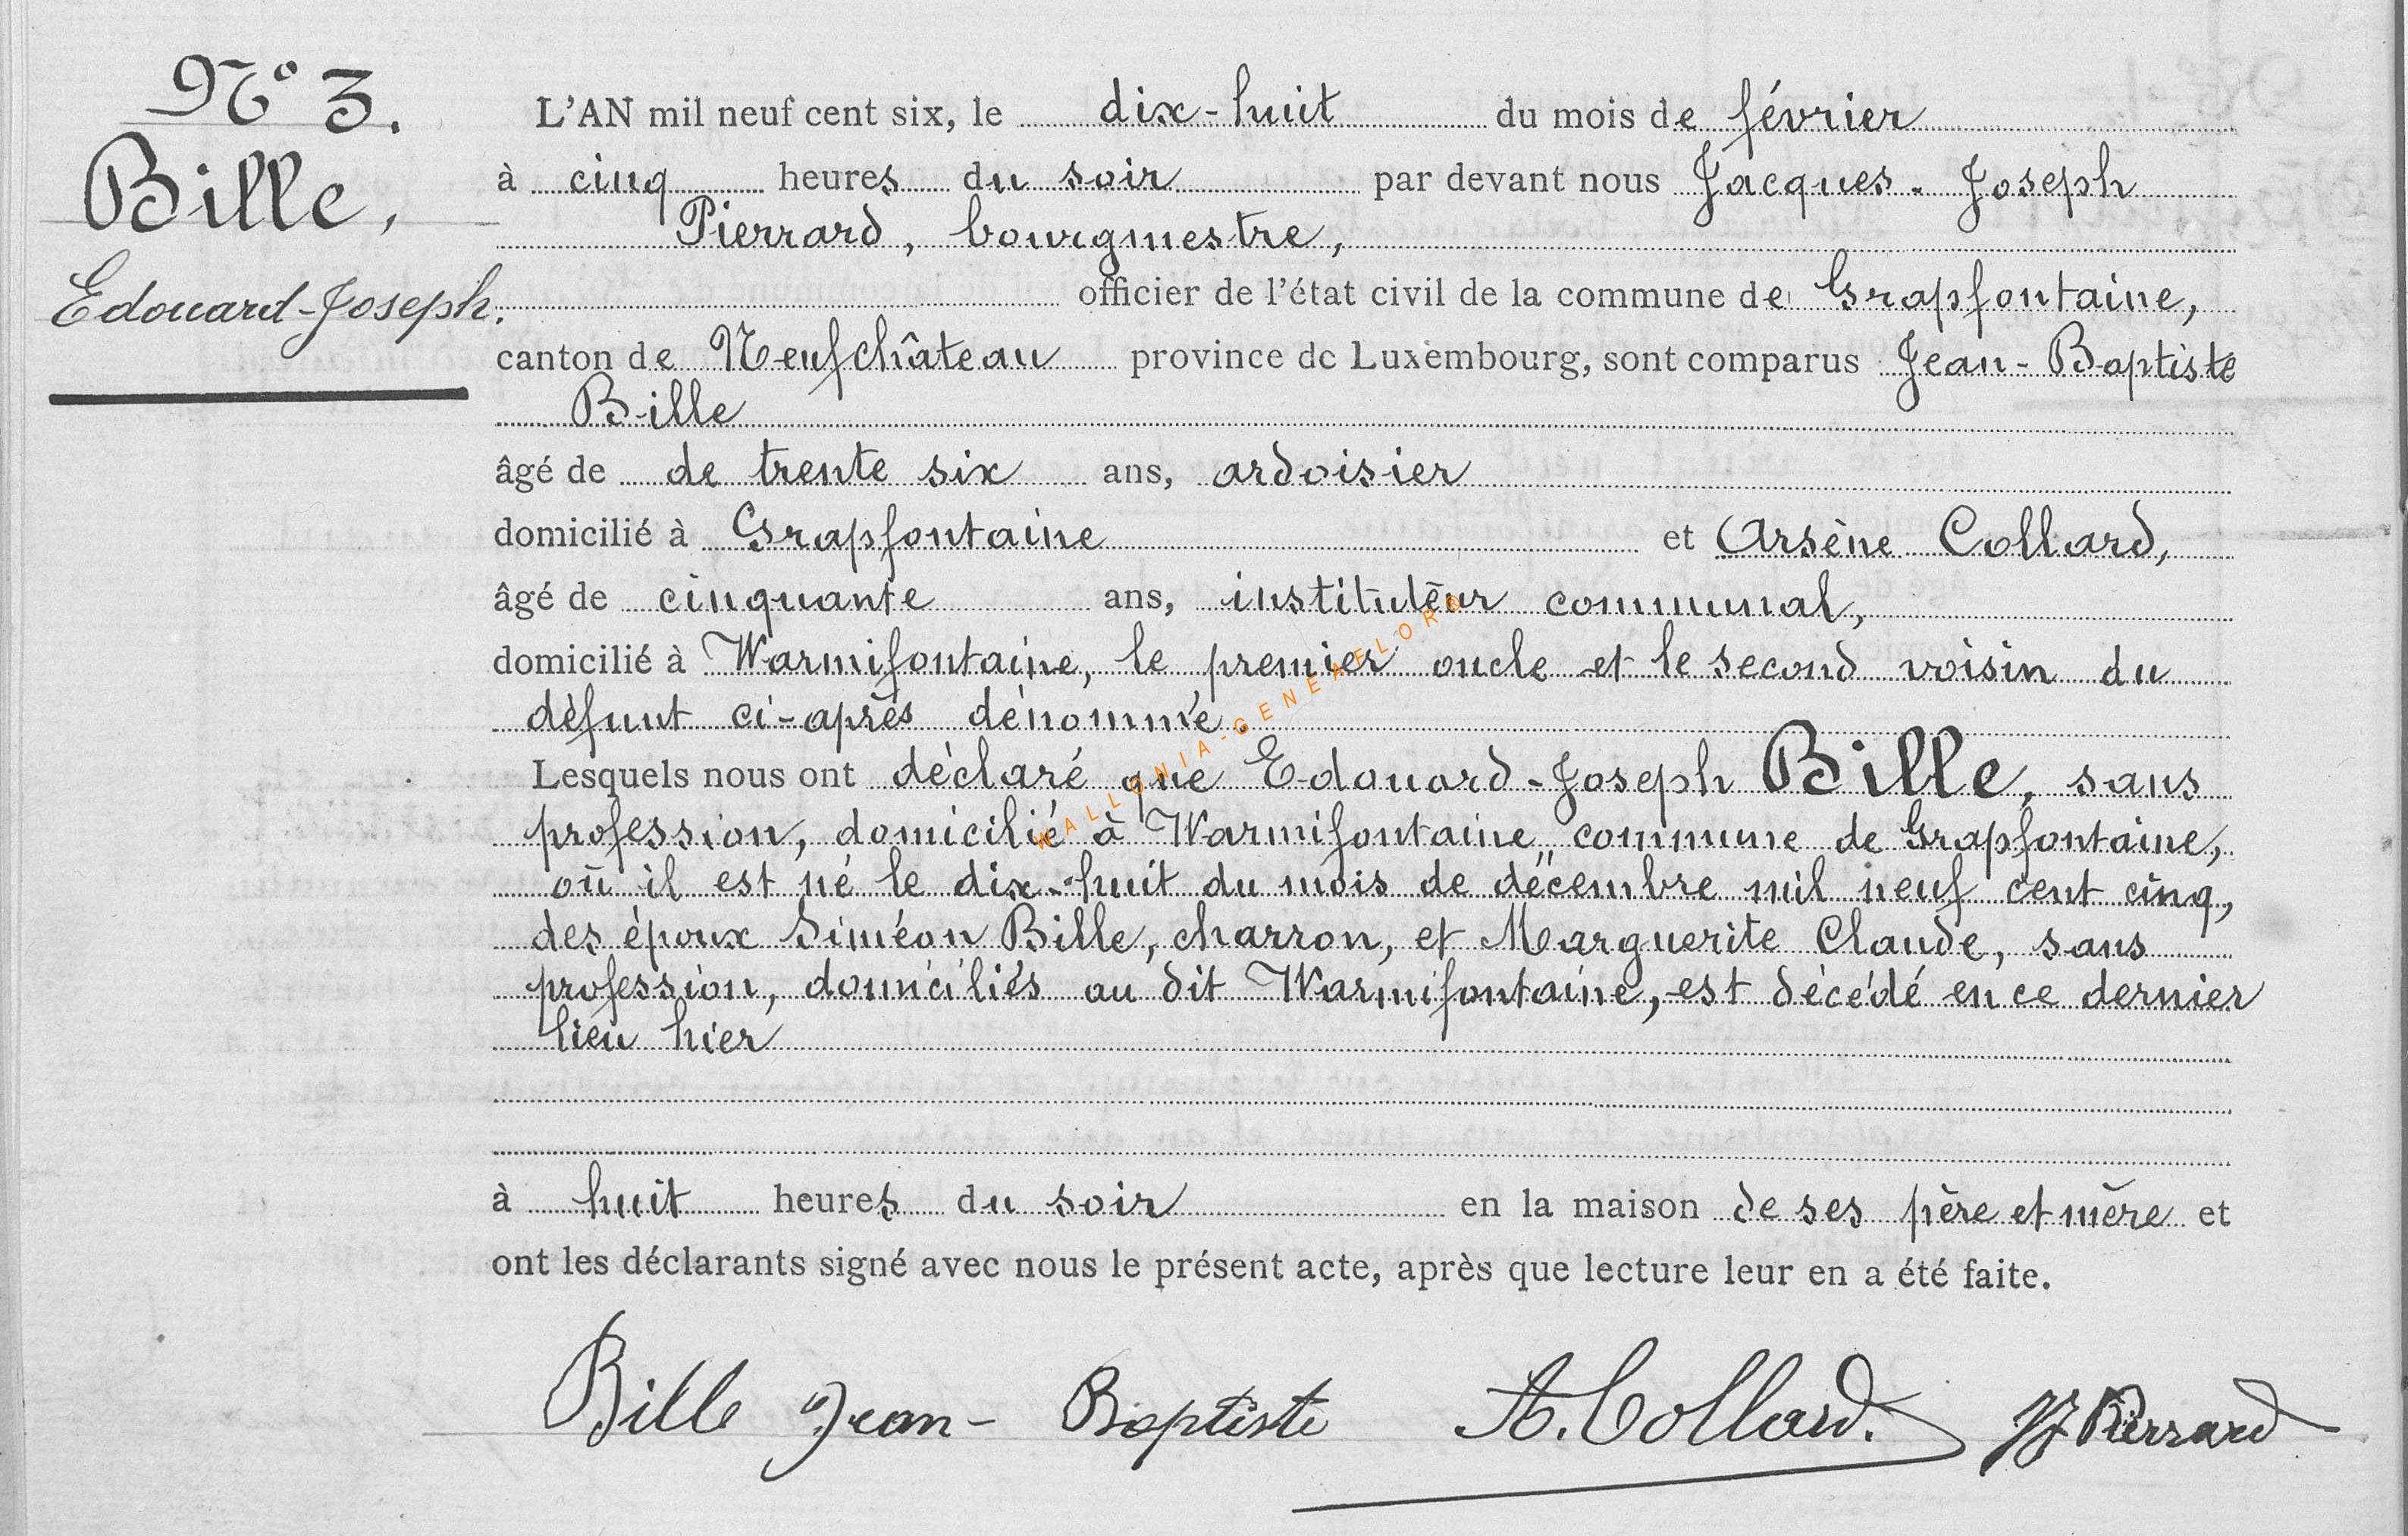 N° 3.
Bille,
Edouard-Joseph.
L'AN mil neuf cent six, le dix-huit du mois de février
à cinq heures du soir par devant nous Jacques-Joseph
Pierrard, bourgmestre,
officier de l'état civil de la commune de Grapfontaine,
canton de Neufchâteau province de Luxembourg, sont comparus Jean-Baptiste
Bille
âgé de de trente six ans, ardoisier
domicilié à Grapfontaine et Arsène Collard,
âgé de cinquante ans, instituteur communal,
domicilié à Warmifontaine, le premier oncle et le second voisin du
défunt ci-après dénommé.
Lesquels nous ont déclaré que Edouard-Joseph Bille, sans
profession, domicilié à Warmifontaine, commune de Grapfontaine,
où il est né le dix-huit du mois de décembre mil neuf cent cinq,
des époux Siméon Bille, charron, et Marguerite Claude, sans
profession, domiciliés au dit Warmifontaine, est décédé en ce dernier
lieu hier
à huit heures du soir en la maison de ses père et mère et
ont les déclarants signé avec nous le présent acte, après que lecture leur en a été faite.
Bille Jean-Baptiste A. Collard. JJ Pierrard
WALLONIA-GENEAFLORE